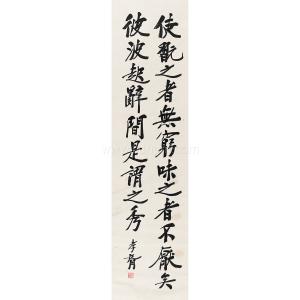 使酖之者無窮味之者不厭矣
彼波起辭間是謂之秀
孝胥